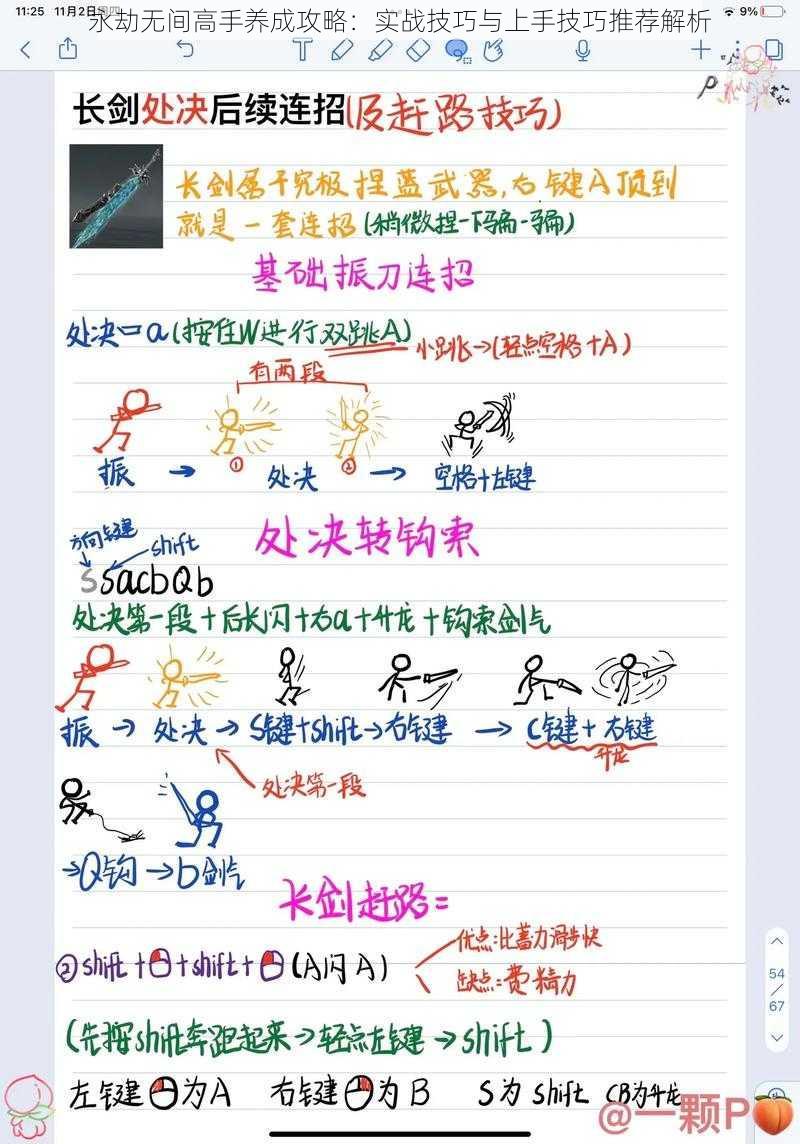 11:25 11月2日周四
永劫无间高手养成攻略：实战技巧与上手技巧推荐解析
9%
长剑处决后续连招(及赶路技巧)
长剑属于究极捏蓝武器,右键A顶到
就是一套连招(稍微捏一下骗一骗)
基础振刀连招
处决=a(按住W进行双跳A) 小跳→(轻点空格+A)
有两段
① ②
振 → 处决 → 空格+左键
处决转钩索
方向键 shift
SSacbQb
处决第一段+后长闪+右a+升龙+钩索剑气
振 → 处决 → S键+shift→右键 → C键+右键
升龙
处决第一段
→Q钩→b剑气
长剑赶路=
优点:比蓄力滑步快
②shift++shift+(A闪A)
缺点:费精力
(先按shift奔跑起来→轻点左键→shift)
左键为A 右键为B S为shift CB为升龙
54
67
@一颗P